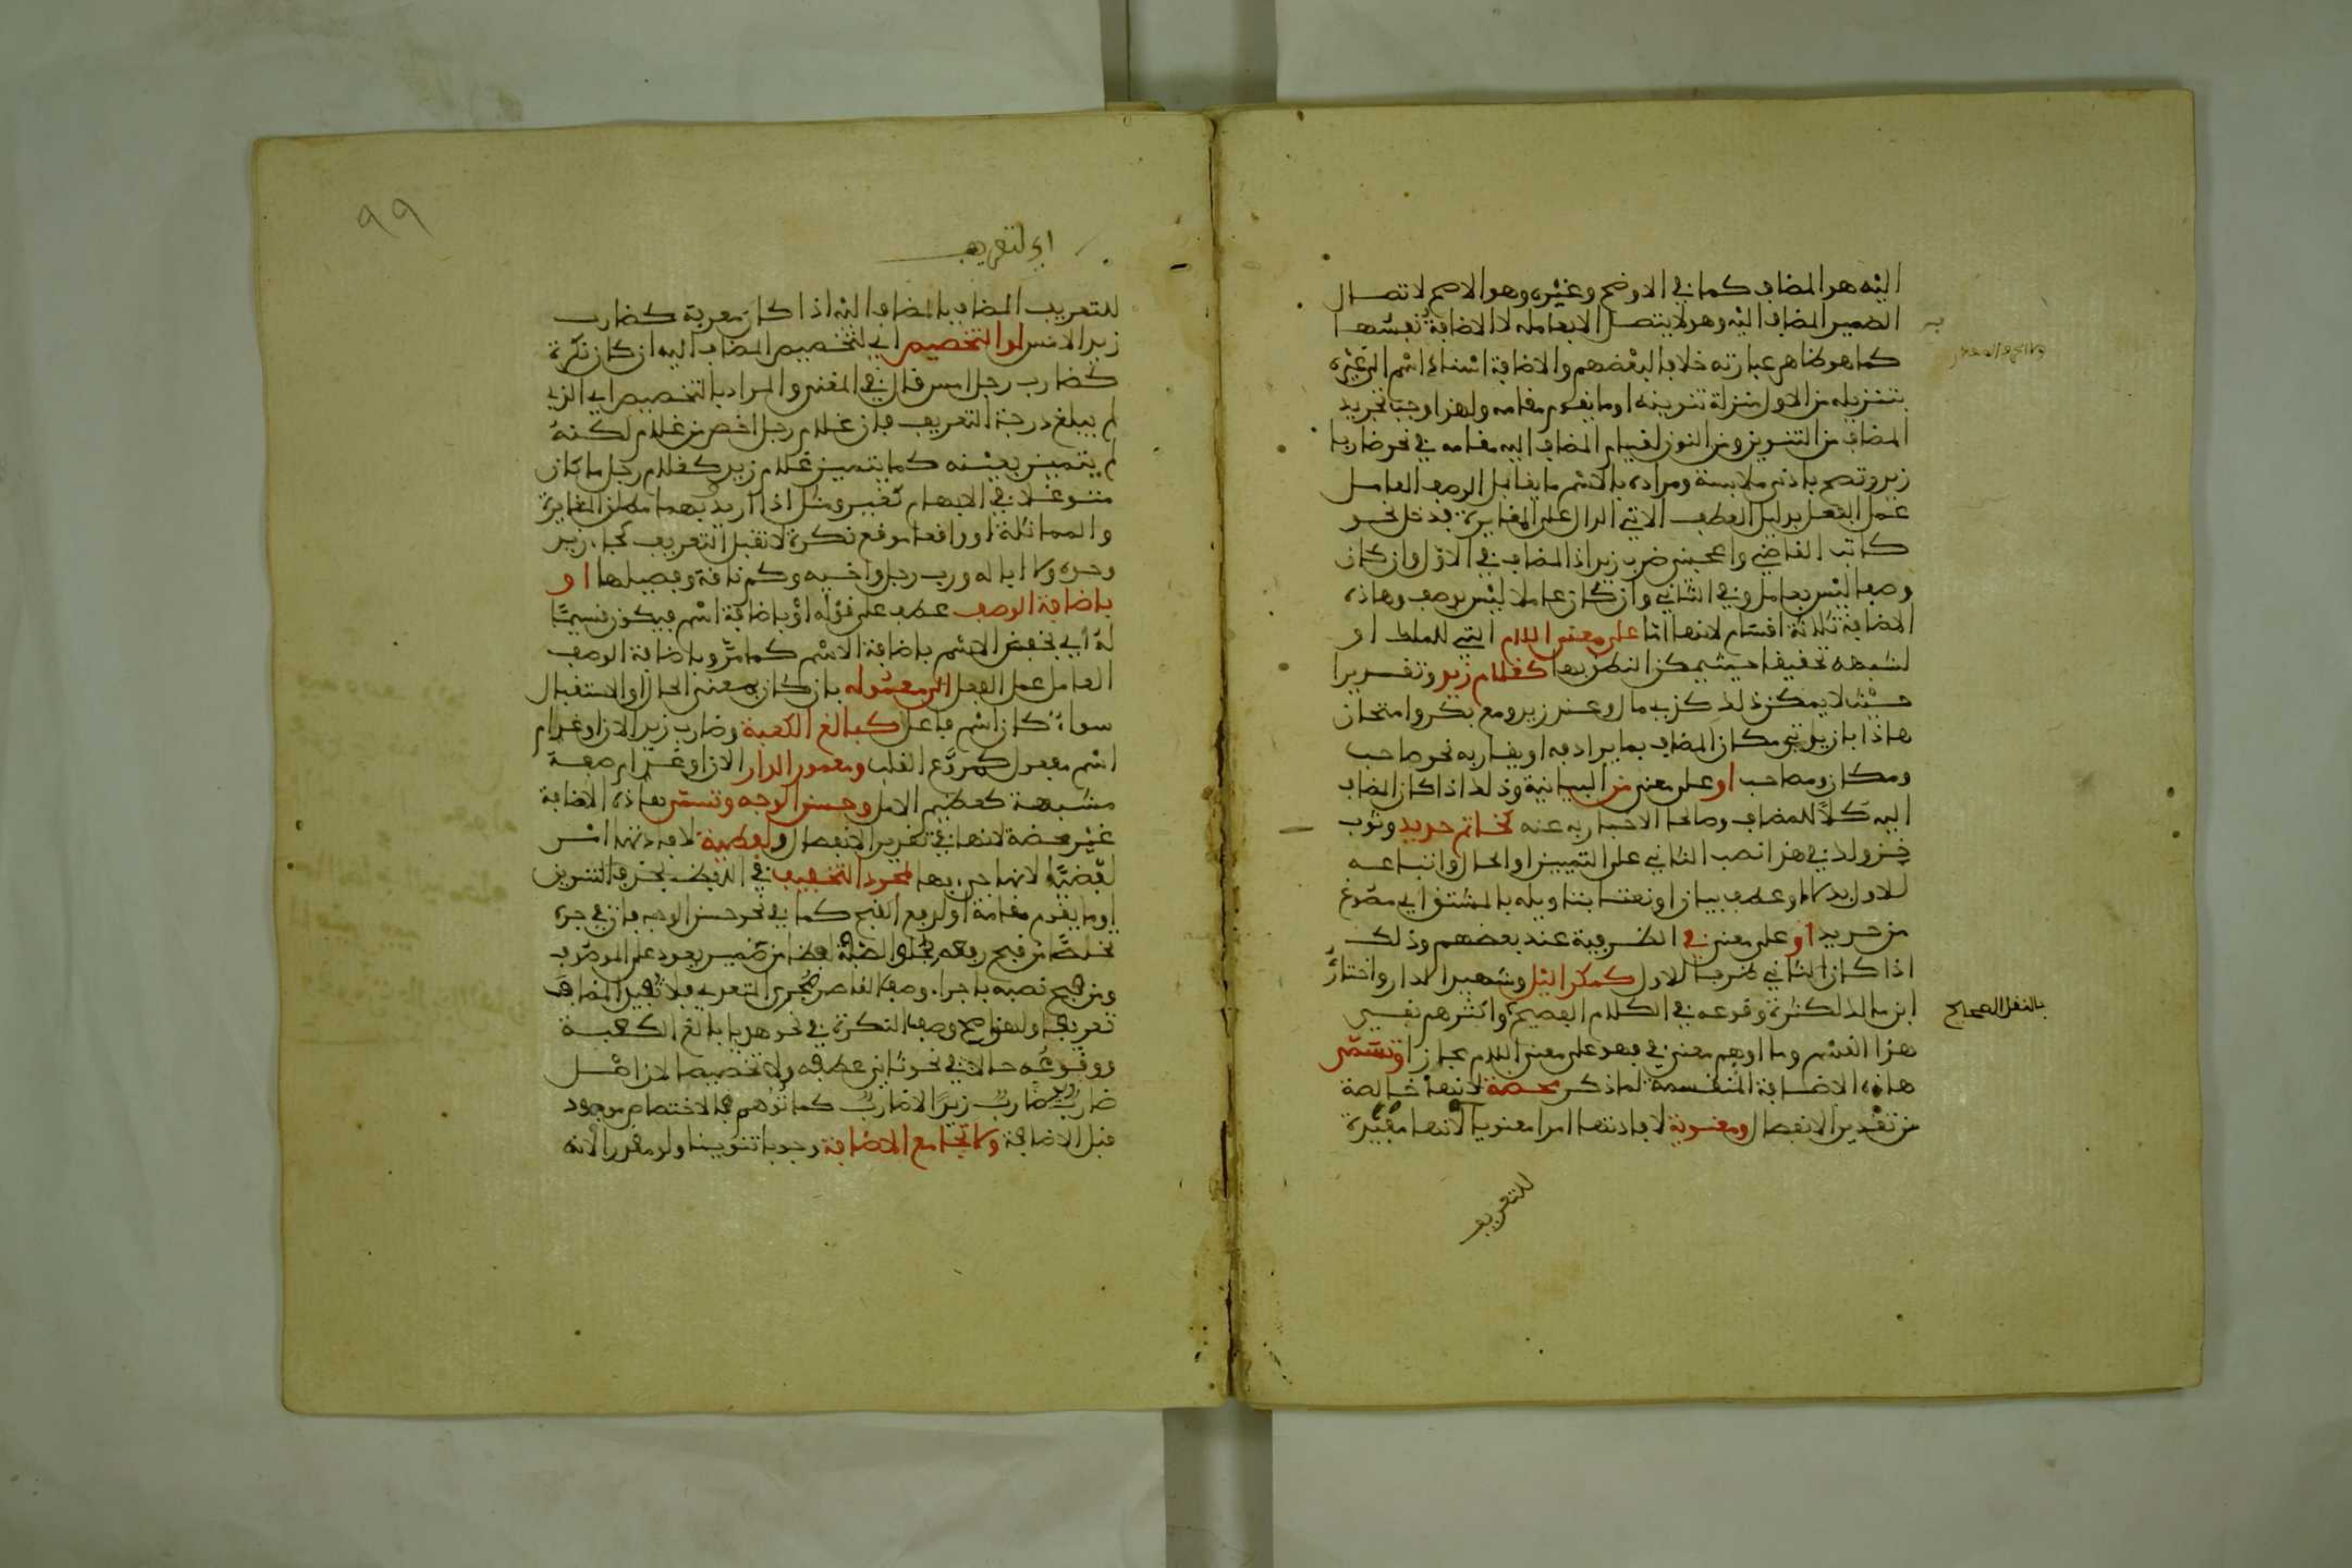 اليه هو المضاف كما في الاوضح وغيره وهو الاصح لاتصال
الضمير المضاف اليه وهو لا يتصل الا بعامله لا الاضافة نفسها
كما هو ظاهر عبارته خلافا لبعضهم والاضافة اسناد اسم الى غيره
بتنزيله من الاول منزلة تنوينه او ما يقوم مقامه ولهذا وجب تجريد
المضاف من التنوين ومن النون لقيام المضاف اليه مقامه في نحو ضاربا
زيد وتصح بادنى ملابسة ومراده بالاسم ما يقابل الوصف العامل
عمل الفعل بدليل العطف الاتي الدال على المغايرة فدخل نحو
كاتب القاضي واعجبني ضرب زيد اذ المضاف في الاول وان كان
وصفا ليس بعامل وفي الثاني وان كان عاملا ليس بوصف وهاذه
الاضافة ثلاثة اقسام لانها اما على معنى اللام التي للملك او
لشبهه تحقيقا حيث يمكن النطق بها كغلام زيد وتقديرا
حيث لا يمكن ذلك كذي مال وعند زيد ومع بكر وامتحان
هاذا بان ياتي مكان المضاف بما يرادفه او يقاربه نحو صاحب
ومكان ومصاحب او على معنى من البيانية وذلك اذا كان المضاف
اليه كلا للمضاف وصالحا للاخبار به عنه كخاتم حديد وثوب
خز ولك في هذا نصب الثاني على التمييز او الحال واتباعه
للاول بدلا او عطف بيان او نعتا بتاويله بالمشتق اي مصوغ
من حديد او على معنى في الظرفية عند بعضهم وذلك
اذا كان الثاني ظرفا للاول كمكر اليل وشهيد الدار واختار
ابن مالك لكثرة وقوعه في الكلام الفصيح واكثرهم نفى
بالنقل الصحيح
هذا القسم وما اوهم معنى في فهو على معنى اللام مجازا وتسمى
هاذه الاضافة المنقسمة لما ذكر محضة لانها خالصة
من تقدير الانفصال ومعنوية لافادتها امرا معنويا لانها مفيدة
للتعريف
٩٩
اي لتعريف
للتعريف المضاف بالمضاف اليه اذا كان معرفة كضارب
زيد الامس او التخصيص اي لتخصيص المضاف اليه ان كان نكرة
كضارب رجل امس قال في المغني والمراد بالتخصيص اي الذي
لم يبلغ درجة التعريف فان غلام رجل اخص من غلام لكنه
لم يتميز بعينه كما يتميز غلام زيد كغلام رجل ما كان
متوغلا في الابهام كغير ومثل اذا اريد بهما مطلق المغايرة
والمماثلة او واقعا موقع نكرة لا تقبل التعريف كجاء زيد
وحده ولا ابا له ورب رجل واخيه وكم ناقة وفصيلها او
باضافة الوصف عطف على قوله او باضافة اسم فيكون قسيما
له اي يخفض الاسم باضافة الاسم كما مر وباضافة الوصف
العامل عمل الفعل الى معموله بان كان بمعنى الحال او الاستقبال
سواء كان اسم فاعل كبالغ الكعبة وضارب زيد الان او غدا ام
اسم مفعول كمروع القلب ومعمور الدار الان او غدا ام صفة
مشبهة كعظيم الامل وحسن الوجه وتسمى هاذه الاضافة
غير محضة لانها في تقدير الانفصال ولفظية لافادتها امرا
لفظيا لانها جيء بها لمجرد التخفيف في اللفظ بحذف التنوين
او ما يقوم مقامه او لرفع القبح كما في نحو حسن الوجه فان في جره
تخلصا من قبح رفعه لخلو الصفة لفظا من ضمير يعود على الموصوف
ومن قبح نصبه باجراء وصف القاصر مجرى المتعدي فلا تفيد المضاف
تعريفا ولهذا صح وصف النكرة في نحو هديا بالغ الكعبة
ووقوعه حالا في نحو ثاني عطفه ولا تخصيصا لان اصل
ضارب زيد ضارب زيدا لا ضارب كما توهم فالاختصاص موجود
قبل الاضافة ولا تجامع الاضافة وجوبا تنوينا ولو مقدرا لانه